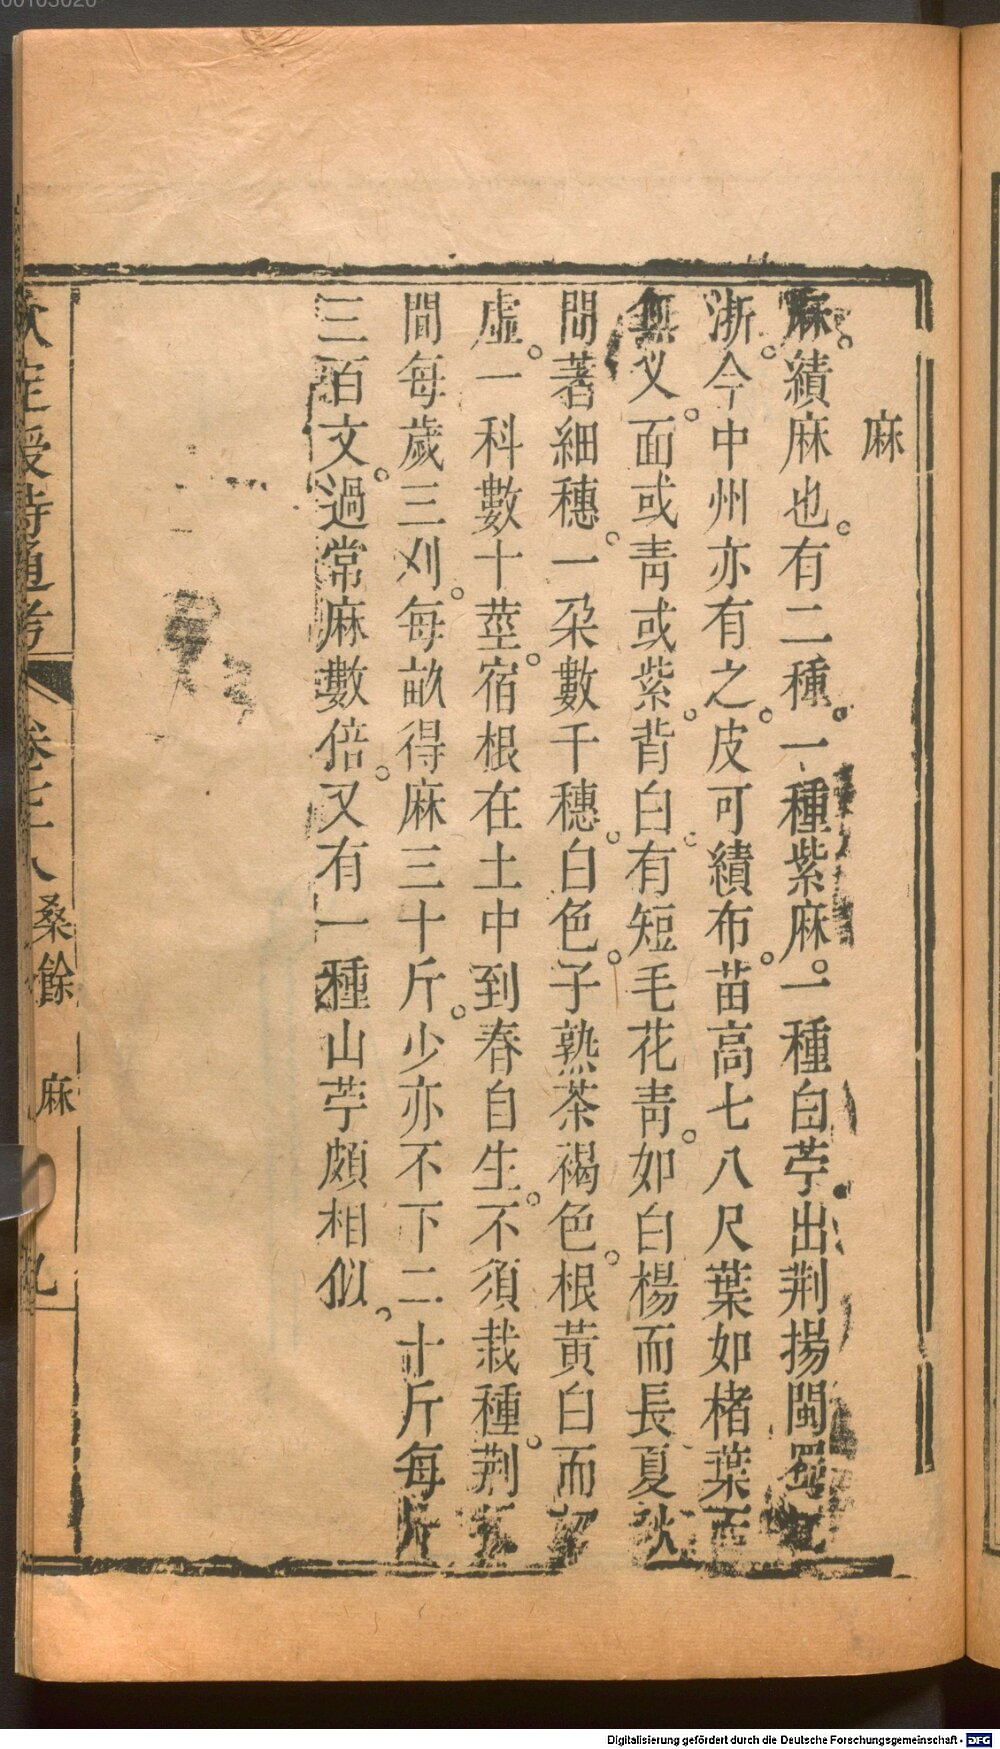 麻
麻。績麻也。有二種。一種紫麻。一種白苧。出荆揚閩蜀江
浙。今中州亦有之。皮可績布。苗高七八尺葉如楮葉面
無叉。面或靑或紫。背白。有短毛花靑。如白楊而長夏秋
間著細穗。一朶數千穗。白色。子熟茶褐色。根黃白而
虛。一科數十莖。宿根在土中到春自生。不須栽種。荆
間每歲三刈。每畝得麻三十斤。少亦不下二十斤每斤
三百文。過常麻數倍。又有一種山苧頗相似。
欽定授時通考 卷七十八 桑餘 麻 九
Digitalisierung gefördert durch die Deutsche Forschungsgemeinschaft - DFG